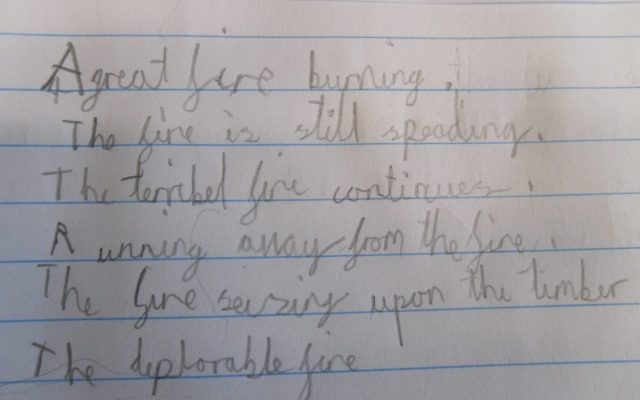 A great fire burning.
The fire is still speading.
The terribel fire continues.
Running away from the fire.
The fire seizing upon the timber
The deplorable fire